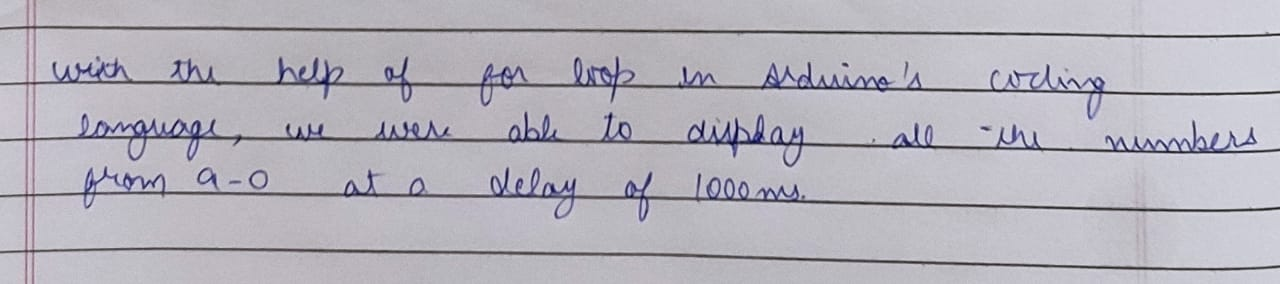 with the help of for loop in Arduino's coding
language, we were able to display all the numbers
from 9-0 at a delay of 1000ms.